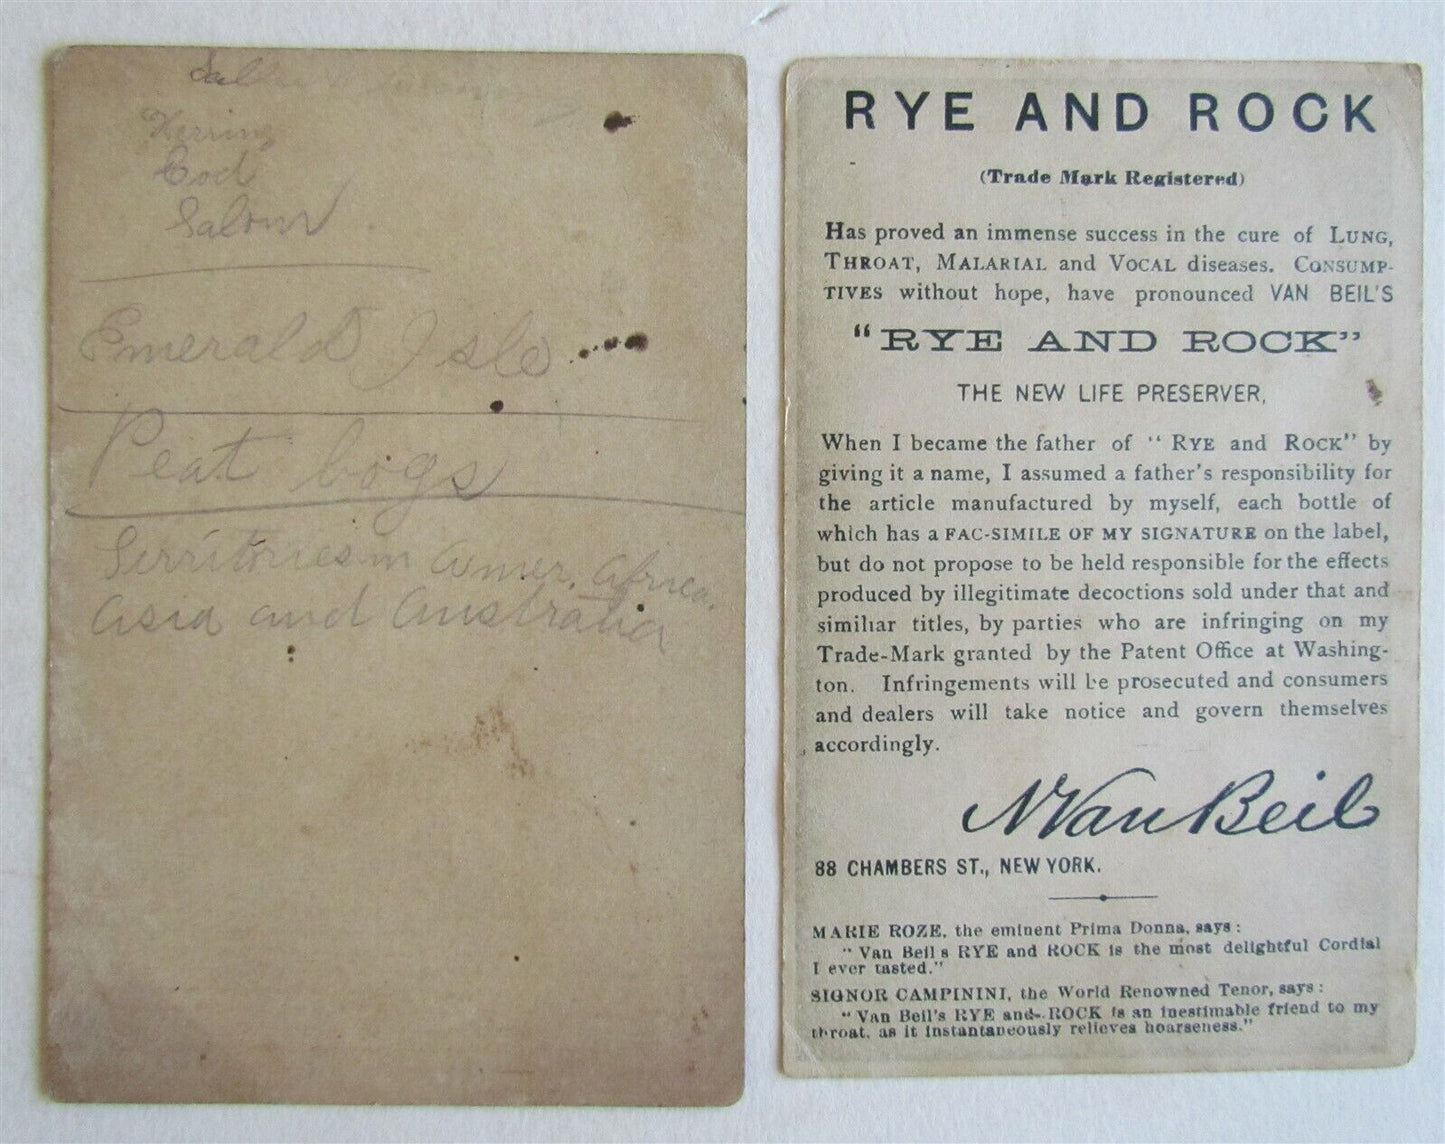 Herring
Cod
Salomn
Emerald Isle
Peat bogs
Territories in Amer. Africa.
Asia and Australia
RYE AND ROCK
(Trade Mark Registered)
Has proved an immense success in the cure of LUNG,
THROAT, MALARIAL and VOCAL diseases. CONSUMP-
TIVES without hope, have pronounced VAN BEIL'S
"RYE AND ROCK"
THE NEW LIFE PRESERVER,
When I became the father of "RYE and ROCK" by
giving it a name, I assumed a father's responsibility for
the article manufactured by myself, each bottle of
which has a FAC-SIMILE OF MY SIGNATURE on the label,
but do not propose to be held responsible for the effects
produced by illegitimate decoctions sold under that and
similiar titles, by parties who are infringing on my
Trade-Mark granted by the Patent Office at Washing-
ton. Infringements will be prosecuted and consumers
and dealers will take notice and govern themselves
accordingly.
N Van Beil
88 CHAMBERS ST., NEW YORK.
MARIE ROZE, the eminent Prima Donna, says:
"Van Beil's RYE and ROCK is the most delightful Cordial
I ever tasted."
SIGNOR CAMPININI, the World Renowned Tenor, says:
"Van Beil's RYE and ROCK is an inestimable friend to my
throat, as it instantaneously relieves hoarseness."